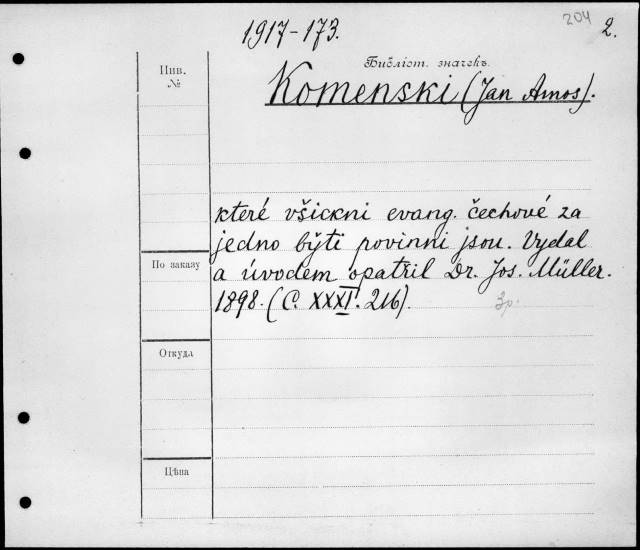 204
1917-173.
2.
Библіот. значекъ.
Инв.
№
Komenski (Jan Amos).
které všickni evang. čechové za
jedno býti povinni jsou. Vydal
По заказу
a úvodem opatřil Dr. Jos. Müller.
1898. (C. XXXI. 216).
3р.
Откуда
Цѣна